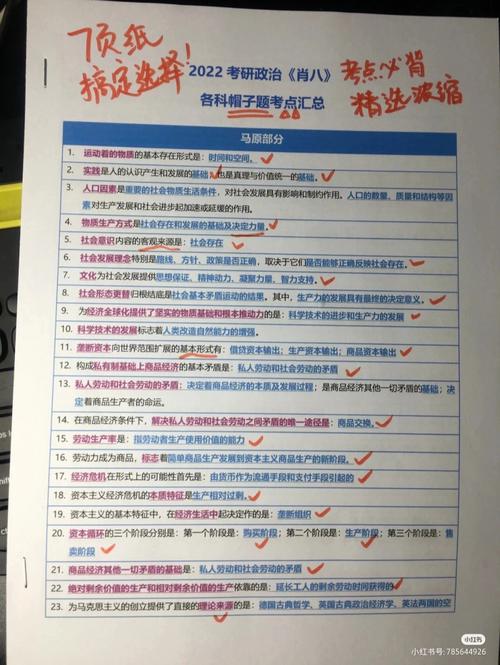 7页纸
搞定选择!
2022 考研政治《肖八》
各科帽子题考点汇总
考点必背
精选浓缩
马原部分
1. 运动着的物质的基本存在形式是:时间和空间。
2. 实践是人的认识产生和发展的基础;也是真理与价值统一的基础。
3. 人口因素是重要的社会物质生活条件,对社会发展具有影响和制约作用。人口的数量、质量和结构等因
素对生产发展和社会进步起加速或延缓的作用。
4. 物质生产方式是社会存在和发展的基础及决定力量。
5. 社会意识内容的客观来源是:社会存在
6. 社会发展理念特别是路线、方针、政策是否正确,取决于它们是否能够正确反映社会存在。
7. 文化为社会发展提供思想保证、精神动力、凝聚力量、智力支持。
8. 社会形态更替归根结底是社会基本矛盾运动的结果。其中,生产力的发展具有最终的决定意义。
9. 为经济全球化提供了坚实的物质基础和根本推动力的是:科学技术的进步和生产力的发展
10. 科学技术的发展标志着人类改造自然能力的增强。
11. 垄断资本向世界范围扩展的基本形式有:借贷资本输出;生产资本输出;商品资本输出
12. 构成私有制基础上商品经济的基本矛盾是:私人劳动和社会劳动的矛盾
13. 私人劳动和社会劳动的矛盾:决定着商品经济的本质及发展过程;是商品经济其他一切矛盾的基础;决定
着商品生产者的命运。
14. 在商品经济条件下,解决私人劳动和社会劳动之间矛盾的唯一途径是:商品交换。
15. 劳动生产率是:指劳动者生产使用价值的能力
16. 劳动力成为商品,标志着简单商品生产发展到资本主义商品生产的新阶段。
17. 经济危机在形式上的可能性首先是:由货币作为流通手段和支付手段引起的
18. 资本主义经济危机的本质特征是生产相对过剩。
19. 资本主义的基本特征中,在经济生活中起决定作的是:垄断组织
20. 资本循环的三个阶段分别是:第一个阶段是:购买阶段;第二个阶段是:生产阶段;第三个阶段是:售
卖阶段
21. 商品经济其他一切矛盾的基础是:私人劳动和社会劳动的矛盾
22. 绝对剩余价值的生产和相对剩余价值的生产依靠的是:延长工人的剩余劳动时间获得的
23. 为马克思主义的创立提供了直接的理论来源的是:德国古典哲学、英国古典政治经济学、英法两国的空
小红书
小红书号:785644926